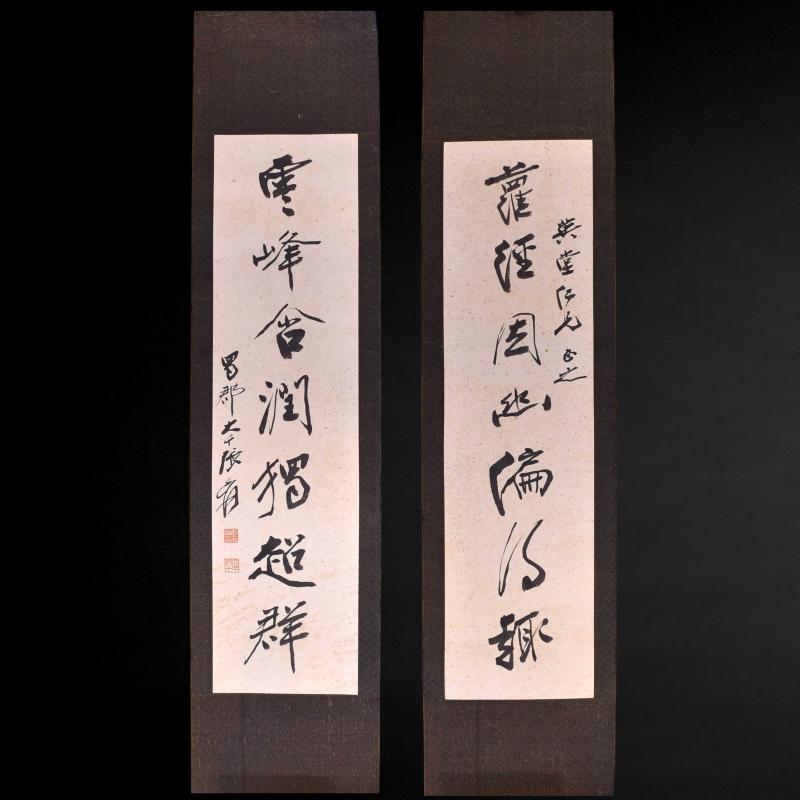 蘿径因幽偏得趣
英堂仁兄正之
雲峰含潤獨超群
蜀郡大千張爰